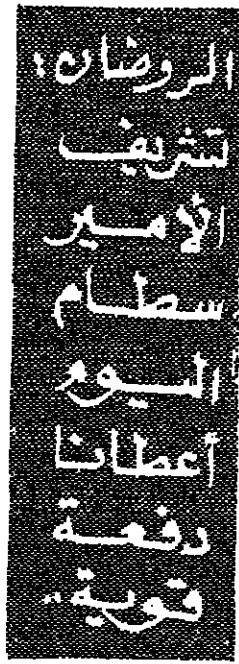 الروضان:
تشريف
الأمير
سطام
اليوم
أعطانا
دفعة
قوية"